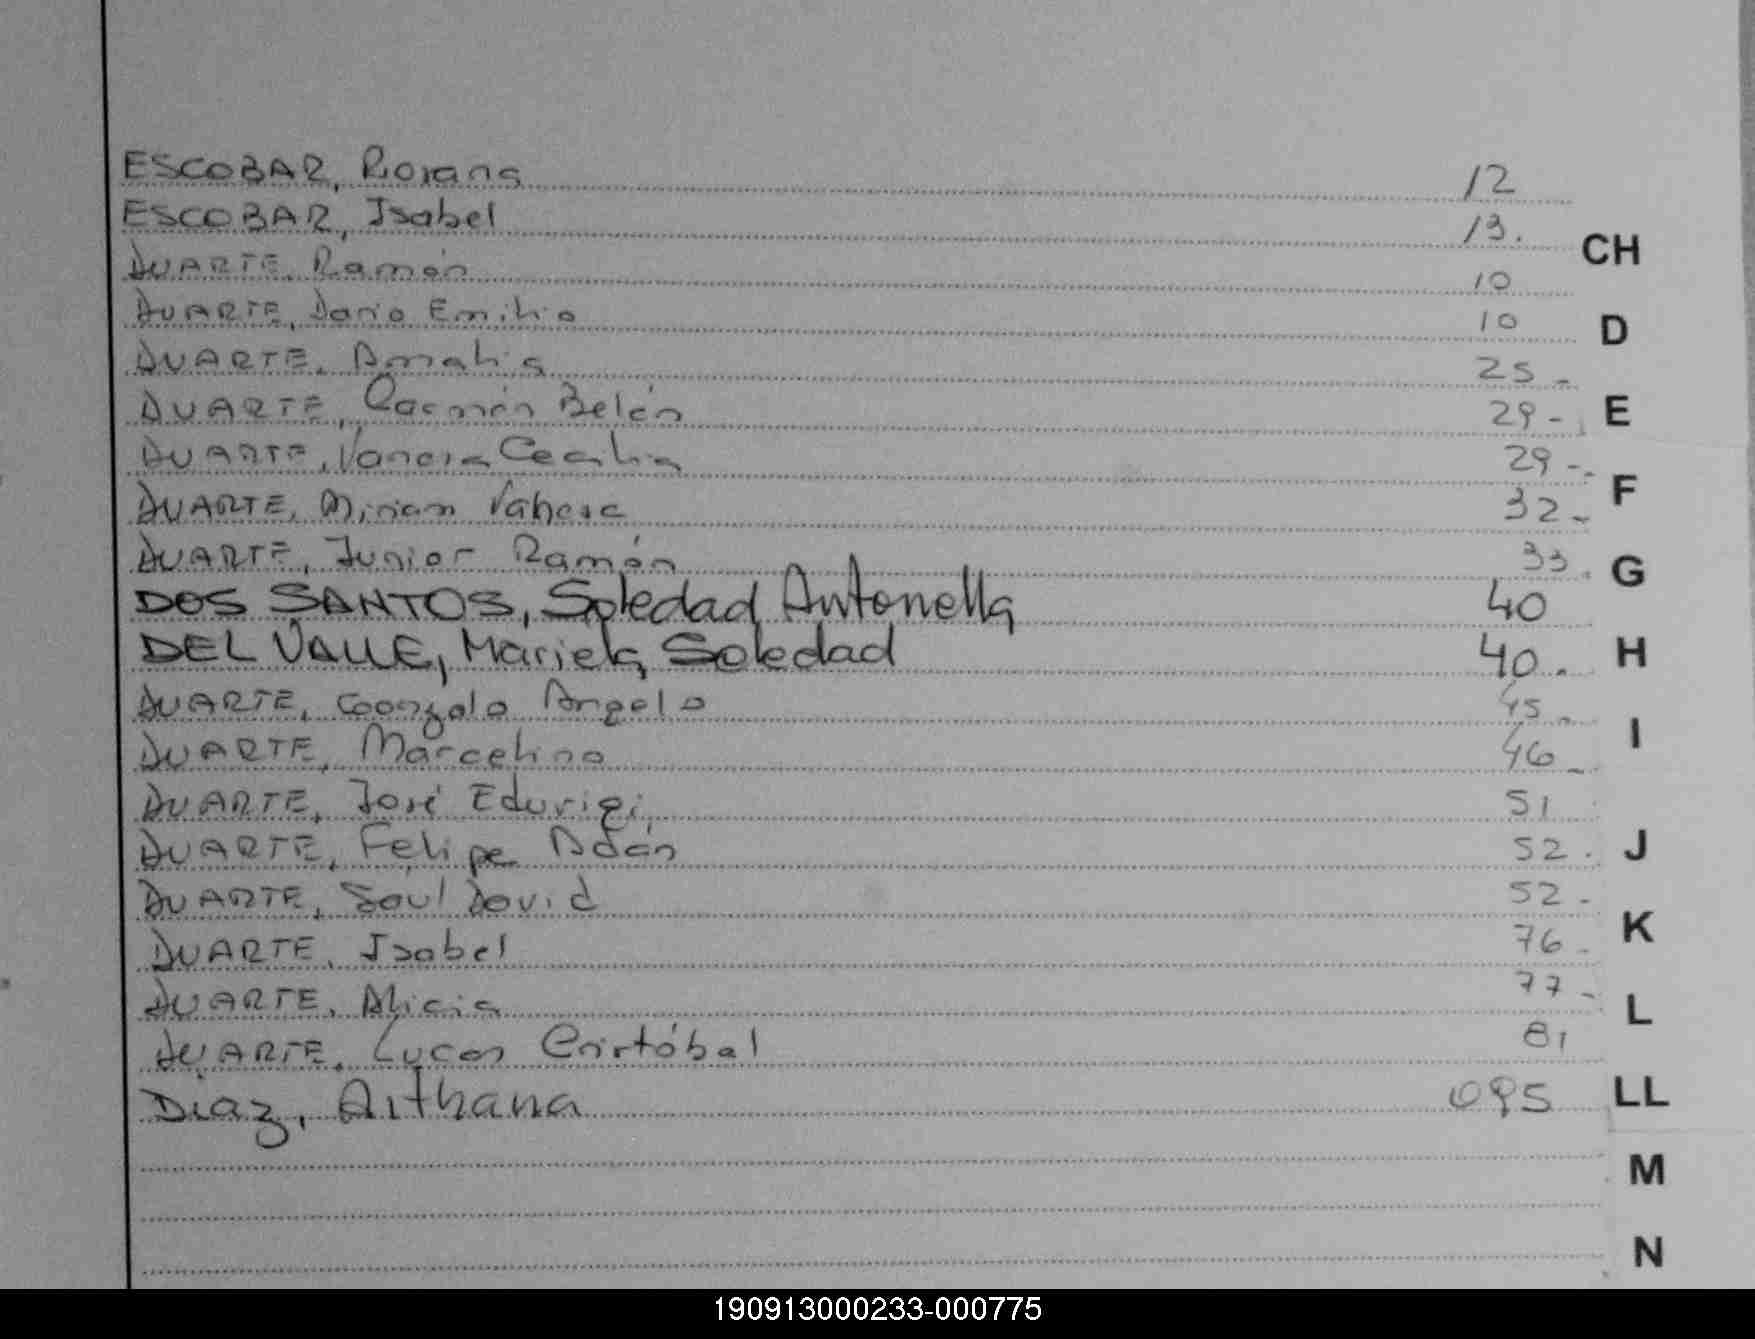 ESCOBAR, Roxana 12
ESCOBAR, Isabel 13.
CH
DUARTE, Ramón 10
DUARTE, Dario Emilio 10
D
DUARTE, Amalia 25-
DUARTE, Carmen Belén 29-
E
DUARTE, Cecilia 29-
F
DUARTE, Miriam 32-
DUARTE, Junior Ramón 33.
G
DOS SANTOS, Soledad Antonella 40
DEL VALLE, Mariela Soledad 40.
H
DUARTE, Gonzalo Angelo 45-
I
DUARTE, Marcelino 46-
DUARTE, José 51
DUARTE, Felipe Adán 52.
J
DUARTE, Saúl David 52-
K
DUARTE, Isabel 76-
DUARTE, Alicia 77-
L
DUARTE, Lucas Cristóbal 81
DIAZ, Aithana 095
LL
M
N
190913000233-000775